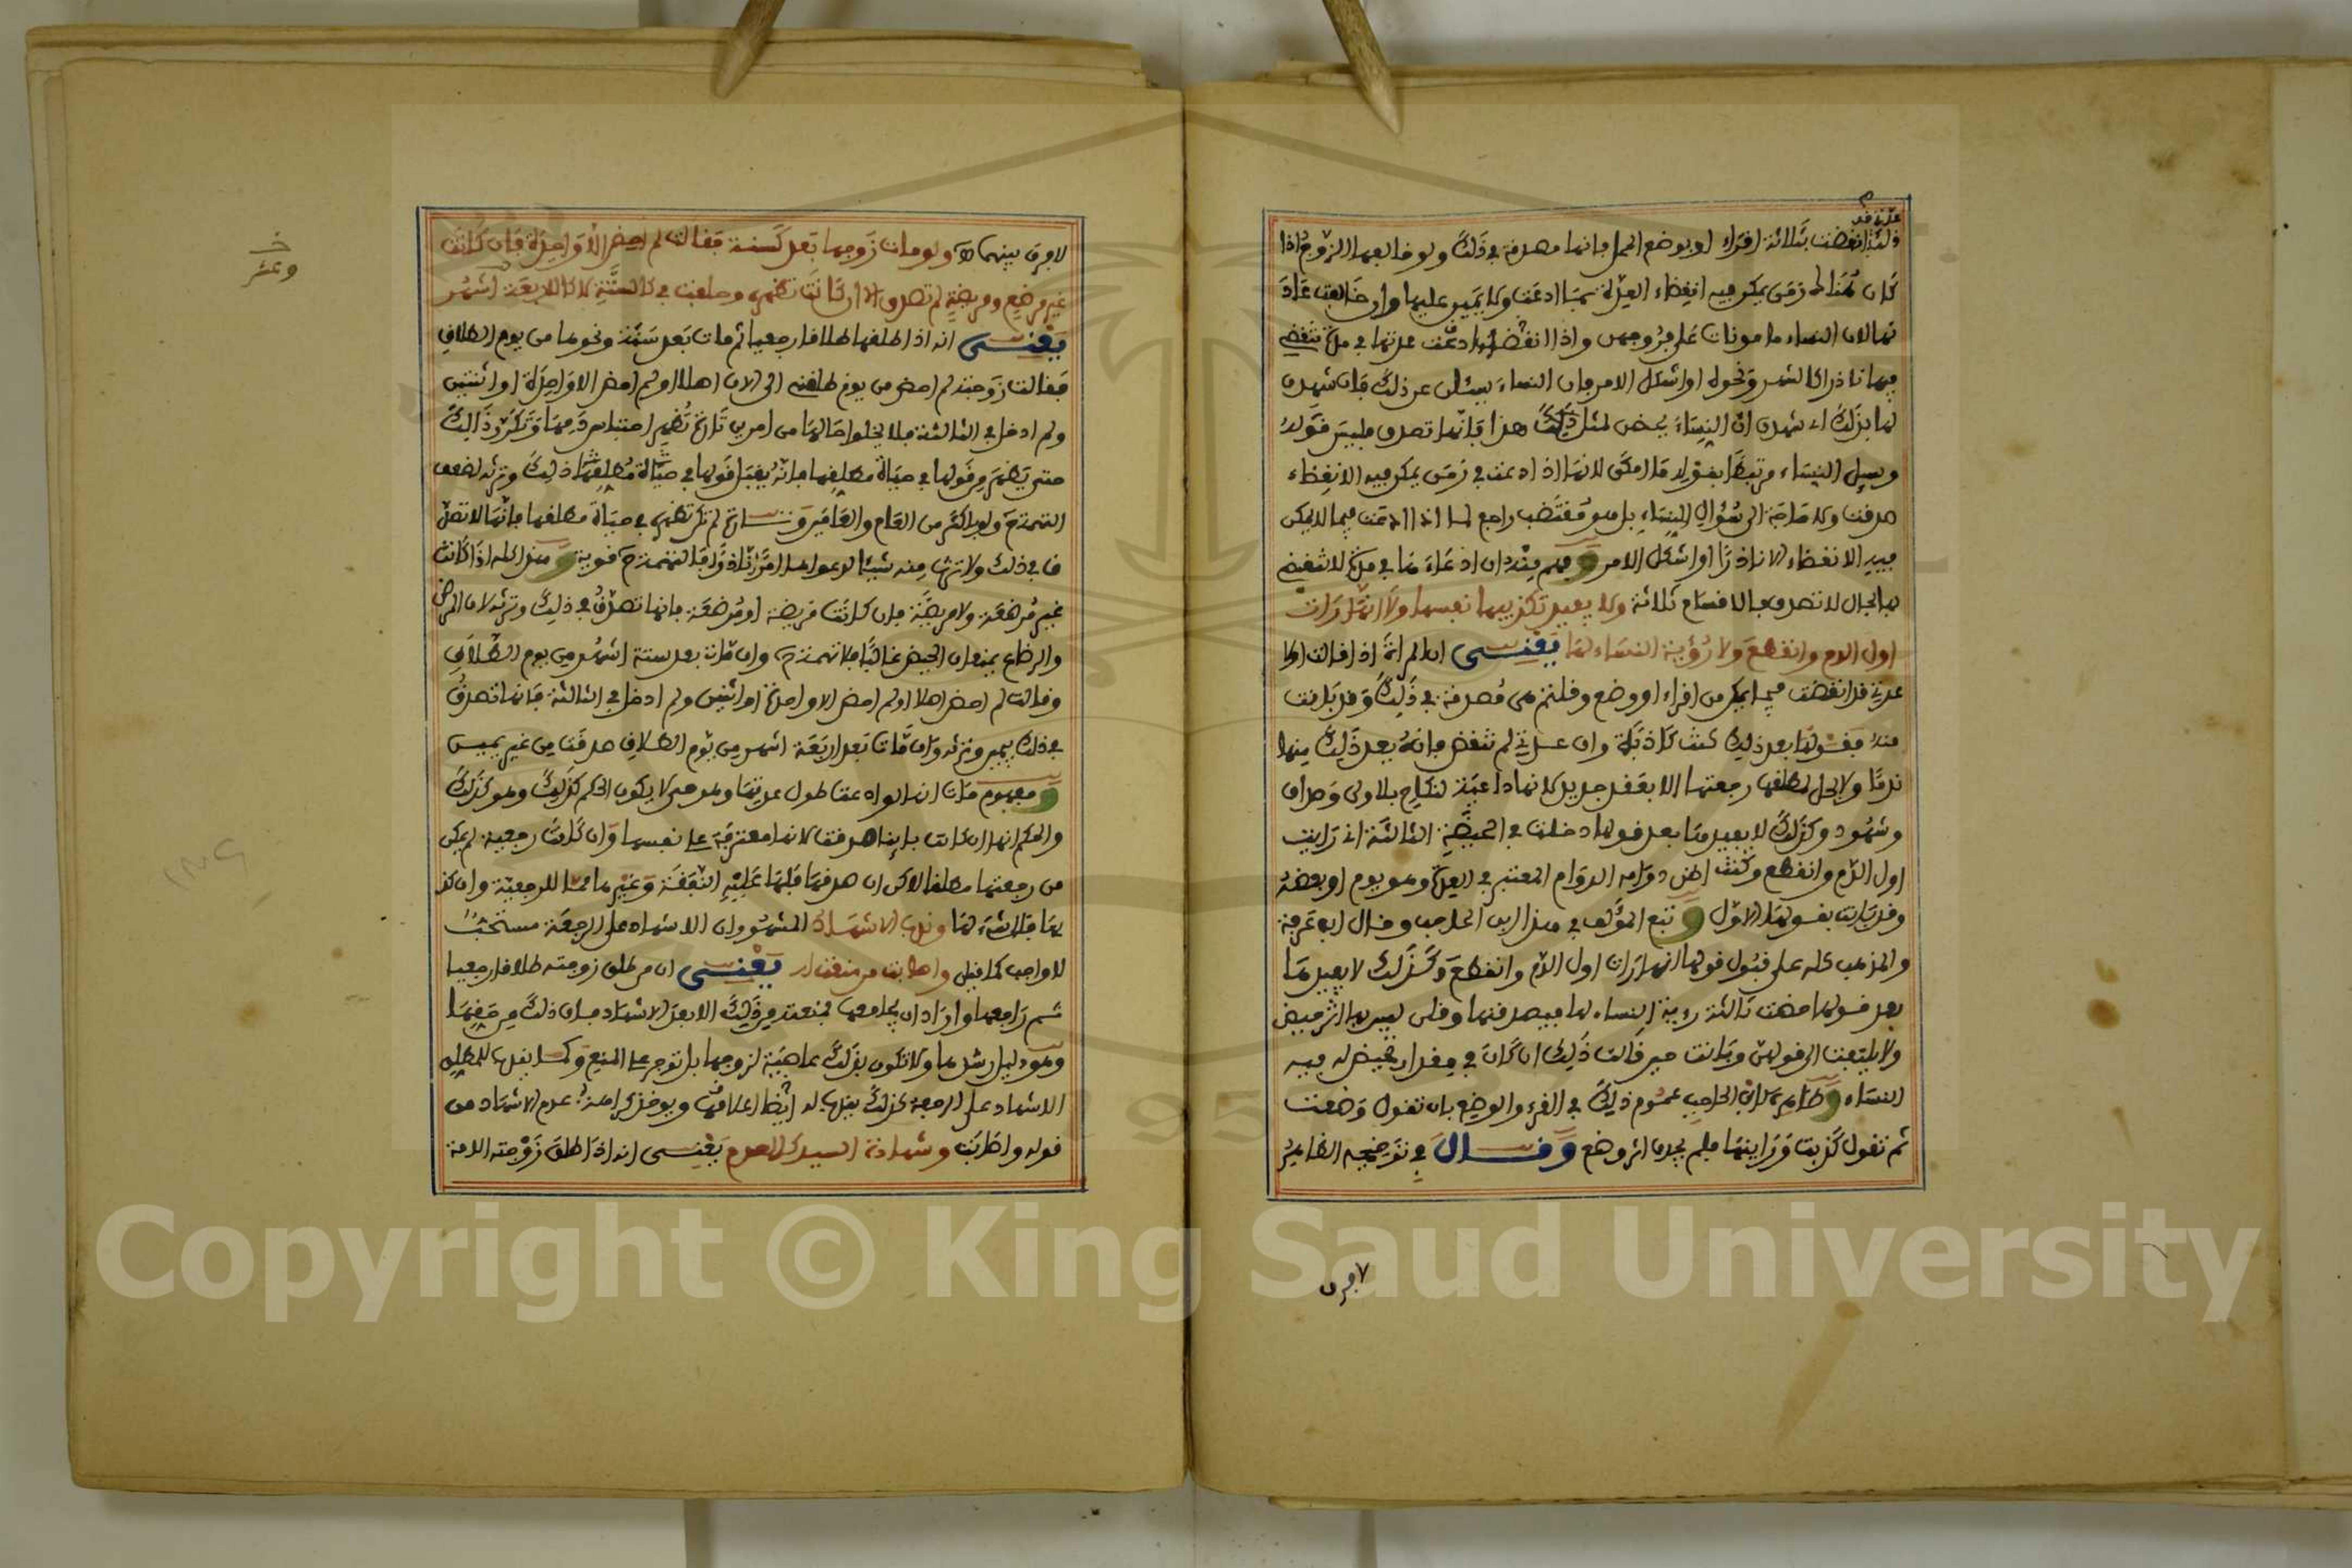 عدتي قد
انقضت بثلاثة اقراء او بوضع الحمل فانها مصدقة في ذلك ولو خالفها الزوج اذا
كان هناك زمن يمكن فيه انقضاء العدة بما ادعت ولا يمين عليها وان خالفت عادتها
لان النساء مامونات على فروجهن واذا ادعت عدتها في مدة تنقضي
فيها نادرا كالشهر ونحوه او اشكل الامر فان النساء يسئلن عن ذلك فان شهدن
لها بذلك اي شهدن ان النساء يحضن لمثل هذا فانها تصدق فليس قوله
وسئل النساء مرتبطا بقوله ما امكن لانها اذا ادعت في زمن يمكن فيه الانقضاء
صدقت ولا حاجة الى سؤال النساء بل هو مقتضب راجع لما اذا ادعت فيما لا يمكن
فيه الانقضاء الا نادرا او اشكل الامر وفهم منه ان ادعاءها في مدة لا تنقضي
فيها بحال لا تصدق فالاقسام ثلاثة ولا يفيد تكذيبها نفسها ولا انها رات
اول الدم وانقطع ولا رؤية النساء لها يعني ان المراة اذا قالت اولا
عدتي قد انقضت فيما يمكن من اقراء او وضع وقلتم هي مصدقة في ذلك وقد بانت
منه فقولها بعد ذلك كنت كاذبة وان عدتي لم تنقض فانه يعد ذلك منها
ندما ولا يحل لمطلقها رجعتها الا بعقد جديد لانها داعية لنكاح بلا ولي وصداق
وشهود وكذلك لا يفيدها بعد قولها دخلت في الحيضة الثالثة اني رايت
اول الدم وانقطع وكنت اظن دوامه الدوام المعتبر في العدة وهو يوم او بعضه
وقد بانت بقولها الاول وتبع المؤلف في هذا ابن الحاجب وقال ابن عرفة
والمذهب كله على قبول قولها انها رات اول الدم وانقطع وكذلك لا يفيدها
بعد قولها مضت ثالثة رؤية النساء لها فيصدقنها وقلن ليس بها اثر حيض
ولا يلتفت الى قولهن وبانت حين قالت ذلك ان كان في مقدار تحيض له فيه
النساء وظاهر كلام ابن الحاجب عموم ذلك في القرء والوضع بان تقول وضعت
ثم تقول كذبت ورءاينها فلم يجدن اثر وضع وقال في توضيحه الظاهر
٧ فرق
لا فرق بينهما ولو مات زوجها بعد كسنة فقالت لم احض الا واحدة فان كانت
غير مرضع ومريضة لم تصدق الا ان كانت تظهره وحلفت في كالستة لا كالاربعة اشهر
وعشر
يعني انه اذا طلقها طلاقا رجعيا ثم مات بعد سنة ونحوها من يوم الطلاق
فقالت زوجته لم احض من يوم طلقني الى الان اصلا او لم احض الا واحدة او اثنتين
ولم ادخل في الثالثة فلا يخلو حالها من امرين تارة تظهر احتباس دمها وتكرر ذلك
حتى يظهر من قولها في حياة مطلقها فانه يقبل قولها في حياة مطلقها ذلك وترثه لضعف
التهمة ولو لاكثر من العام والعامين وتارة لم تكن تظهره في حياة مطلقها فانها لا تصدق
في ذلك ولا ترثه منه شيئا لدعواها امرا نادرا فالتهمة قوية وهذا كله اذا كانت
غير مرضعة ولا مريضة فان كانت مريضة او مرضعة فانها تصدق في ذلك وترثه لان المرض
والرضاع يمنعان الحيض غالبا فلا تهمة وان مات بعد ستة اشهر من يوم الطلاق
وقالت لم احض اصلا او لم احض الا واحدة او اثنتين ولم ادخل في الثالثة فانها تصدق
في ذلك بيمين وترثه وان مات بعد اربعة اشهر من يوم الطلاق صدقت من غير يمين
ومفهوم مات انه لو ادعت طول عدتها وهو حي لا يكون الحكم كذلك وهو كذلك
والحكم انها ان كانت باينا صدقت لانها معترفة على نفسها وان كانت رجعية لم يمكن
من رجعتها مطلقا لاكن ان صدقها فلها عليه النفقة وغيرها مما للرجعية وان كذبها
فلا شيء لها وندب الاشهاد المشهور ان الاشهاد على الرجعة مستحب
لا واجب كما قيل واصابت من منعت له يعني ان من طلق زوجته طلاقا رجعيا
ثم راجعها واراد ان يجامعها فمنعته من ذلك الا بعد الاشهاد فان ذلك من حقها
وهو دليل رشدها ولا تكون بذلك عاصية لزوجها بل توجر على المنع وكما يندب للمطلق
الاشهاد على الرجعة كذلك يندب له ايضا اعلامها ويوخذ كراهة عدم الاشهاد من
قوله واصابت وشهادة السيد كالعدم يعني انه اذا طلق زوجته الامة